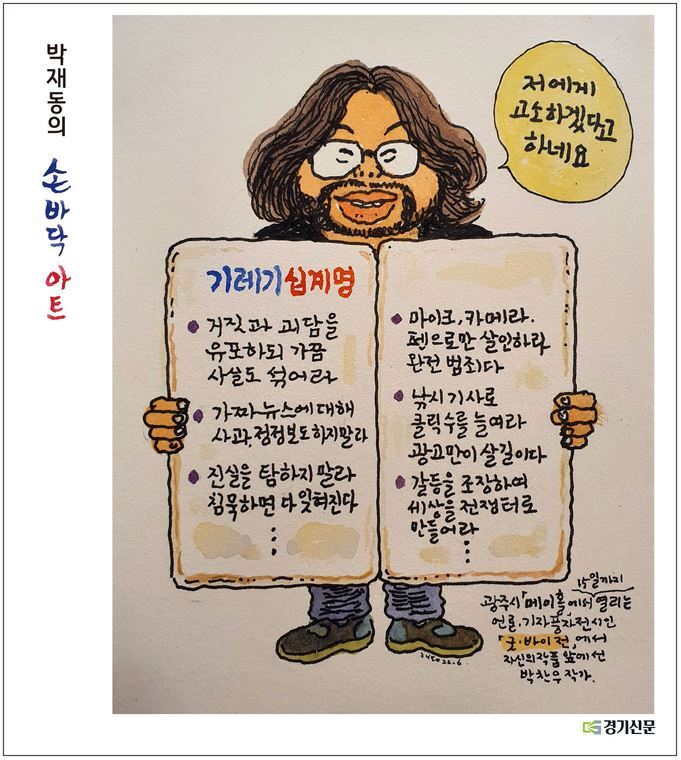 박재동의 손바닥 아트
저에게
고소하겠다고
하네요
기레기십계명
거짓과 괴담을
유포하되 가끔
사실도 섞어라
가짜뉴스에 대해
사과, 정정보도하지말라
진실을 탐하지 말라
침묵하면 다 잊혀진다
마이크, 카메라.
펜으로만 살인하라
완전 범죄다
낚시 기사로
클릭수를 늘여라
광고만이 살길이다
갈등을 조장하여
세상을 전쟁터로
만들어라
15일까지
광주시 「메이홀」에서 열리는
언론, 기자풍자전시인
「굿·바이전」에서
자신의 작품 앞에 선
박찬우 작가.
22.6.
경기신문